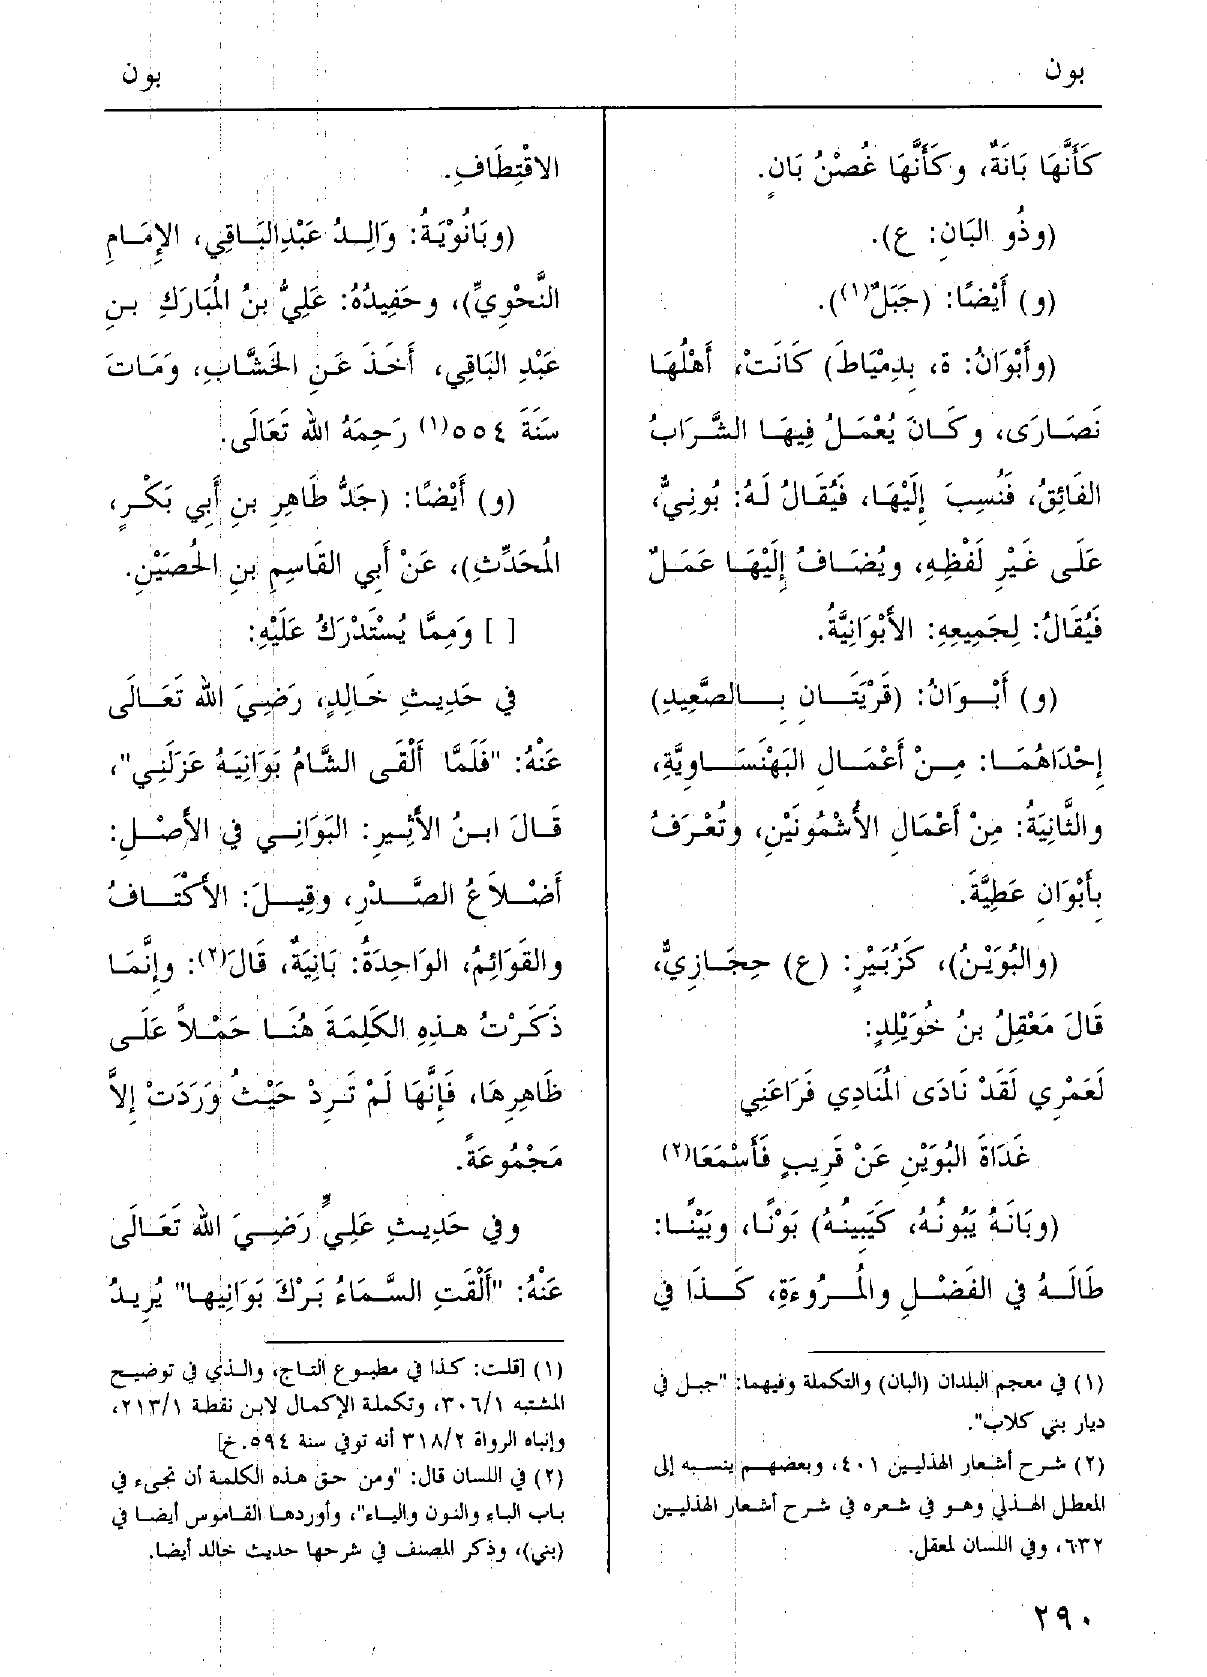 بون
بون
كَأَنَّهَا بَانَةٌ، وكَأَنَّهَا غُصْنُ بَانٍ.
(وذُو البَانِ: ع).
(و) أَيْضًا: (جَبَلٌ(١)).
(وأَبْوَانُ: ة، بِدِمْيَاطَ) كَانَتْ، أَهْلُهَا
نَصَارَى، وكَانَ يُعْمَلُ فِيهَا الشَّرَابُ
الفَائِقُ، فَنُسِبَ إِلَيْهَا، فَيُقَالُ لَهُ: بُونِيٌّ،
عَلَى غَيْرِ لَفْظِهِ، ويُضَافُ إِلَيْهَا عَمَلٌ
فَيُقَالُ: لِجَمِيعِهِ: الأَبْوَانِيَّةُ.
(و) أَبْوَانُ: (قَرْيَتَانِ بِالصَّعِيدِ)
إِحْدَاهُمَا: مِنْ أَعْمَالِ البَهْنَسَاوِيَّةِ،
والثَّانِيَةُ: مِنْ أَعْمَالِ الأُشْمُونَيْنِ، وتُعْرَفُ
بِأَبْوَانِ عَطِيَّةَ.
(والبُوَيْنُ)، كَزُبَيْرٍ: (ع) حِجَازِيٌّ،
قَالَ مَعْقِلُ بنُ خُوَيْلِدٍ:
لَعَمْرِي لَقَدْ نَادَى المُنَادِي فَرَاعَنِي
غَدَاةَ البُوَيْنِ عَنْ قَرِيبٍ فَأَسْمَعَا(٢)
(وبَانَهُ يَبُونُهُ، كَيَبِينُهُ) بَوْنًا، وبَيْنًا:
طَالَهُ في الفَضْلِ والمُرُوءَةِ، كَذَا في
(١) في معجم البلدان (البان) والتكملة وفيهما: "جبل في
ديار بني كلاب".
(٢) شرح أشعار الهذليين ٤٠١، وبعضهم ينسبه إلى
المعطل الهذلي وهو في شعره في شرح أشعار الهذليين
٦٣٢، وفي اللسان لمعقل.
الاقْتِطَافِ.
(وبَانُويَةُ: وَالِدُ عَبْدِالبَاقِي، الإِمَامِ
النَّحْوِيِّ)، وحَفِيدُهُ: عَلِيُّ بنُ المُبَارَكِ بنِ
عَبْدِ البَاقِي، أَخَذَ عَنِ الخَشَّابِ، ومَاتَ
سَنَةَ ٥٥٤(١) رَحِمَهُ الله تَعَالَى.
(و) أَيْضًا: (جَدُّ طَاهِرِ بنِ أَبِي بَكْرٍ،
المُحَدِّثِ)، عَنْ أَبِي القَاسِمِ بنِ الحُصَيْنِ.
[ ] وَمِمَّا يُسْتَدْرَكُ عَلَيْهِ:
في حَدِيثِ خَالِدٍ، رَضِيَ الله تَعَالَى
عَنْهُ: "فَلَمَّا أَلْقَى الشَّامُ بَوَانِيَهُ عَزَلَنِي"،
قَالَ ابنُ الأَثِيرِ: البَوَانِي في الأَصْلِ:
أَضْلاَعُ الصَّدْرِ، وقِيلَ: الأَكْتَافُ
والقَوَائِمُ، الوَاحِدَةُ: بَانِيَةٌ، قَالَ(٢): وإِنَّمَا
ذَكَرْتُ هذِهِ الكَلِمَةَ هُنَا حَمْلاً عَلَى
ظَاهِرِهَا، فَإِنَّهَا لَمْ تَرِدْ حَيْثُ وَرَدَتْ إِلاَّ
مَجْمُوعَةً.
وفي حَدِيثِ عَلِيٍّ رَضِيَ الله تَعَالَى
عَنْهُ: "أَلْقَتِ السَّمَاءُ بَرْكَ بَوَانِيها" يُرِيدُ
(١) [قلت: كذا في مطبوع التاج، والذي في توضيح
المشتبه ٣٠٦/١، وتكملة الإكمال لابن نقطة ٢١٣/١،
وإنباه الرواة ٣١٨/٢ أنه توفي سنة ٥٩٤. خ]
(٢) في اللسان قال: "ومن حق هذه الكلمة أن تجيء في
باب الباء والنون والياء"، وأوردها القاموس أيضا في
(بني)، وذكر المصنف في شرحها حديث خالد أيضا.
٢٩٠